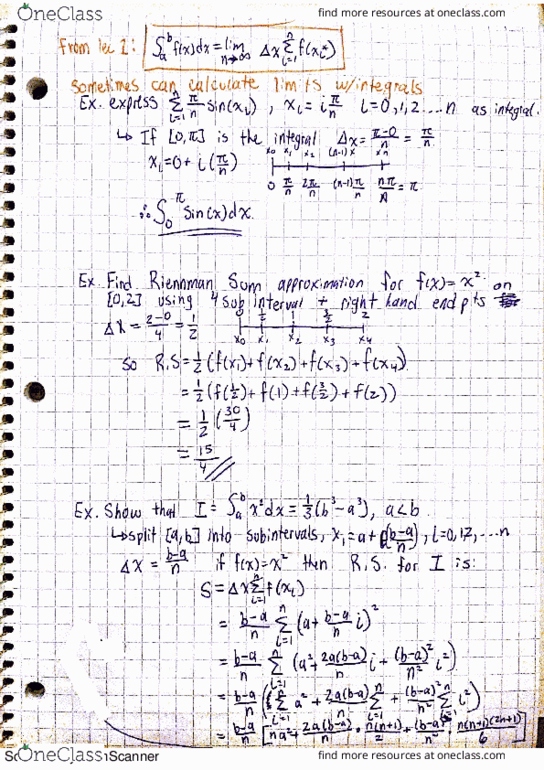 OneClass
find more resources at oneclass.com
find more resources at oneclass.com
From lec 2: ∫_a^b f(x)dx = lim_{n→∞} Δx Σ_{i=1}^n f(x_i*)
sometimes can calculate limits w/integrals
Ex. express Σ_{i=1}^n π/n sin(x_i), x_i = i π/n i=0,1,2....n as integral.
↳ If [0,π] is the integral Δx = π-0/n = π/n
x_0 x_1 x_2 (n-1)x x_n
x_i = 0 + i(π/n)
0 π/n 2π/n (n-1)π/n nπ/n = π
∴ ∫_0^π sin(x)dx.
Ex. Find Riennman Sum approximation for f(x) = x² on
[0,2] using 4 sub interval + right hand end pts
ΔX = 2-0/4 = 1/2
0 1/2 1 3/2 2
x_0 x_1 x_2 x_3 x_4
So R.S = 1/2 (f(x_1)+f(x_2)+f(x_3)+f(x_4))
= 1/2 (f(1/2)+f(1)+f(3/2)+f(2))
= 1/2 (30/4)
= 15/4
Ex. Show that I = ∫_a^b x²dx = 1/3(b³-a³), a<b
↳ split [a,b] into subintervals, x_i = a + i(b-a/n), i=0,1,2,...n
ΔX = b-a/n if f(x)=x² then R.S. for I is:
S = Δx Σ_{i=1}^n f(x_i)
= b-a/n Σ_{i=1}^n (a + b-a/n i)²
= b-a/n Σ_{i=1}^n (a² + 2a(b-a)/n i + (b-a)²/n² i²)
= b-a/n (Σ_{i=1}^n a² + 2a(b-a)/n Σ_{i=1}^n i + (b-a)²/n² Σ_{i=1}^n i²)
= b-a/n [na² + 2a(b-a)/n · n(n+1)/2 + (b-a)²/n² · n(n+1)(2n+1)/6]
OneClass
Scanner
find more resources at oneclass.com